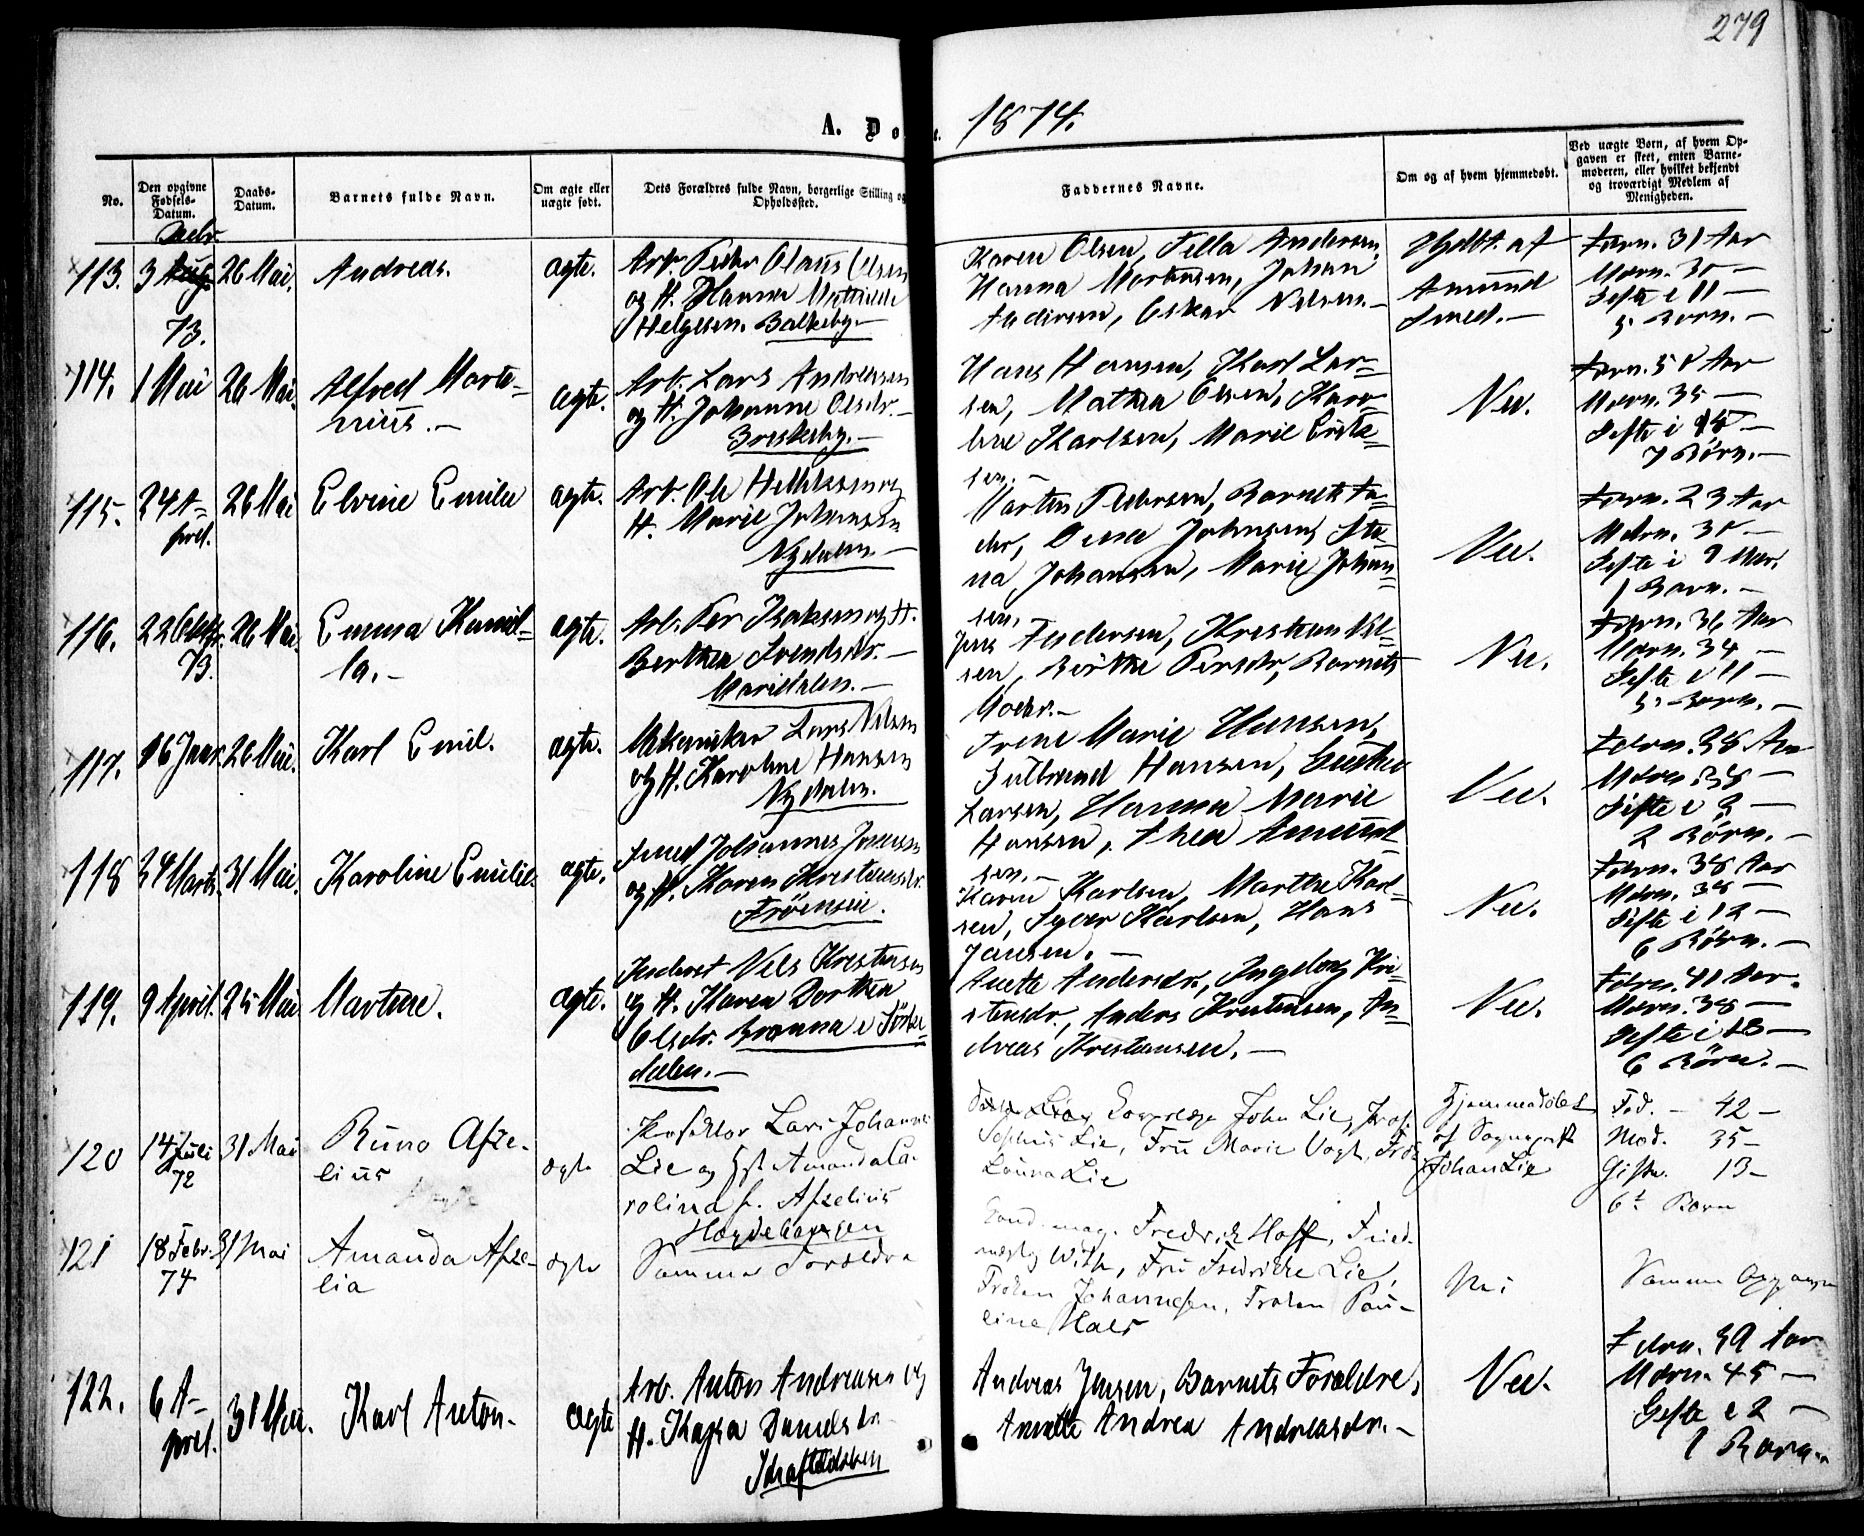 279
A. Do e. 1874.
No.
Den opgivne Fødsels-Datum.
Daabs-Datum.
Barnets fulde Navn.
Om ægte eller uægte født.
Dets Forældres fulde Navn, borgerlige Stilling og Opholdssted.
Faddernes Navne.
Om og af hvem hjemmedøbt.
Ved uægte Børn, af hvem Opgaven er skeet, enten Barnemoderen, eller hvilket bekjendt og troværdigt Medlem af Menigheden.
113. 3 Aug. 73. 26 Mai. Andreas. ægte.
Arb. Peder Olaus Olsen
og H. Hanna Mathilde
Helgesen. Balkeby.
Karen Olsen, Andersen,
Hanna Mortensen, Johan
Andersen, Oskar Nilsen.
Hjdbt. af
Amund
Smed.
Færn. 31 Aar
Moren. 30
Gifte i 11
5 Børn.
114. 1 Mai 26 Mai. Alfred Marte-
nius. ægte.
Arb. Lars Andreasen
og H. Johanne Olsdr.
Briskeby.
Hans Hansen, Karl Lar-
sen, Mathea Olsen, Karo-
line Karlsen, Marie
sen.
Nei.
Færn. 50 Aar
Moren. 35
Gifte i 15
7 Børn.
115. 24 A-
pril. 26 Mai Elvine Emilie ægte.
Arb. Ole
H. Marie Johansen
Nydalen.
Morten Pedersen, Barnets Fa-
der, Johnsen, Sti-
na Johansen, Marie Johan-
sen.
Nei.
Færn. 23 Aar
Moren. 30
Gifte i 9 Mdr.
1 Barn.
116. 22 Oktbr.
73. 26 Mai. Emma Kamil-
la. ægte.
Arb. Per Isaksen og H.
Berthea Svendsdr.
Maridalen.
Jens Andersen, Kristian Nil-
sen, Berthe Persdr, Barnets
Moder.
Nei.
Færn. 36 Aar
Moren. 34
Gifte i 11
5 Børn.
117. 16 Januar 26 Mai. Karl Emil. ægte.
Mekaniker Lars Nilsen
og H. Karoline Hansen
Nydalen.
Marie Hansen,
Gulbrand Hansen, Gustav
Larsen, Hanna Marie
Hansen, Thea Amund-
sen.
Nei.
Færn. 38 Aar
Moren. 38
Gifte i 3
2 Børn.
118 24 Marts. 31 Mai. Karoline Emilie. ægte.
Smed Johannes
og H. Karen Kristiansdr.
Frøensvei.
Karen Karlsen, Marthe Karl-
sen, Syver Karlsen, Hans
Jansen.
Nei.
Færn. 38 Aar
Moren. 38
Gifte i 12
6 Børn.
119. 9 April. 25 Mai Martine. ægte.
Inderst Nils Kristensen
og H. Karen Dorthea
Olsdr. Brænna i Sørke-
dalen.
Anette Andersdr., Ingeborg Kri-
stensdr., Anders Kristensen, An-
dreas Kristiansen.
Nei.
Færn. 41 Aar.
Moren. 38
Gifte i 13
6 Børn.
120 14 Juli
72 31 Mai Runo Afze-
lius ægte
Prosektor Lars Johannes
Lie og Hst. Amanda Ca-
rolina f. Afzelius
Hægdehaugen
John Lie, Prof.
Sophus Lie, Fru Marie Vogt, Frøk.
Laura Lie
Hjemmedøbt
af Sogneprest
Johan Lie
Fad. 42
Mod. 35
Gifte 13
6t Barn
121 18 Febr.
74 31 Mai Amanda Afze-
lia ægte Samme Forældre
Cand. mag. Fredrik Hoff,
With, Fru Fredrikke Lie,
Frøken Johannesen, Frøken Pau-
line Hals
Nei
Samme
122. 6 A-
pril. 31 Mai. Karl Anton. ægte
Arb. Anton Andreasen og
H. Kajsa Danielsdr.
Andreas Jensen, Barnets Forældre,
Anette Andrea Andreasdr.
Nei.
Færn. 39 Aar
Moren. 45
Gifte i 2
1 Barn.